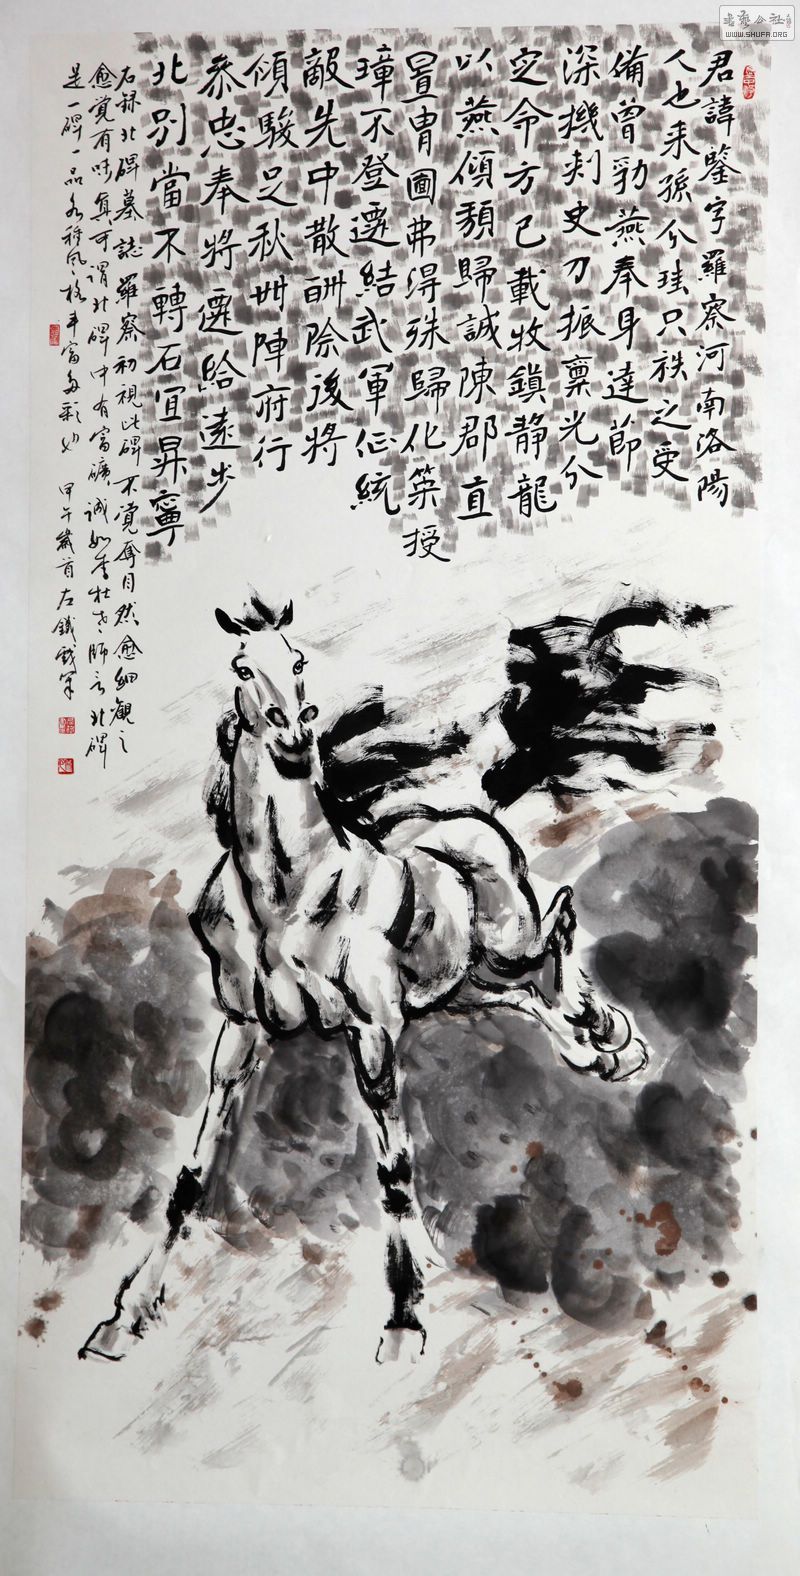 君諱鑒字羅察河南洛陽
人也來孫分珪只祑之受
備曾勒燕奉身達節
深機刺史刀振稟光分
定令方已載牧鎮靜龍
以燕傾頹歸誠陳郡直
置胄圖弗得殊歸化築授
璋不登遷結武軍征統
敵先中散酬除後將
傾駿足秋卌陣府行
泰忠奉將遷給遠步
北別當不轉石宜昇寧
右録北碑墓誌羅察初視此碑不覺奪目然愈細觀之
愈覺有味真可謂北碑中有富礦誠如李杜老師言北碑
是一碑一品各種風格丰富多彩也 甲午歲首左鐵戰軍
書藝公社
WWW.SHUFA.ORG